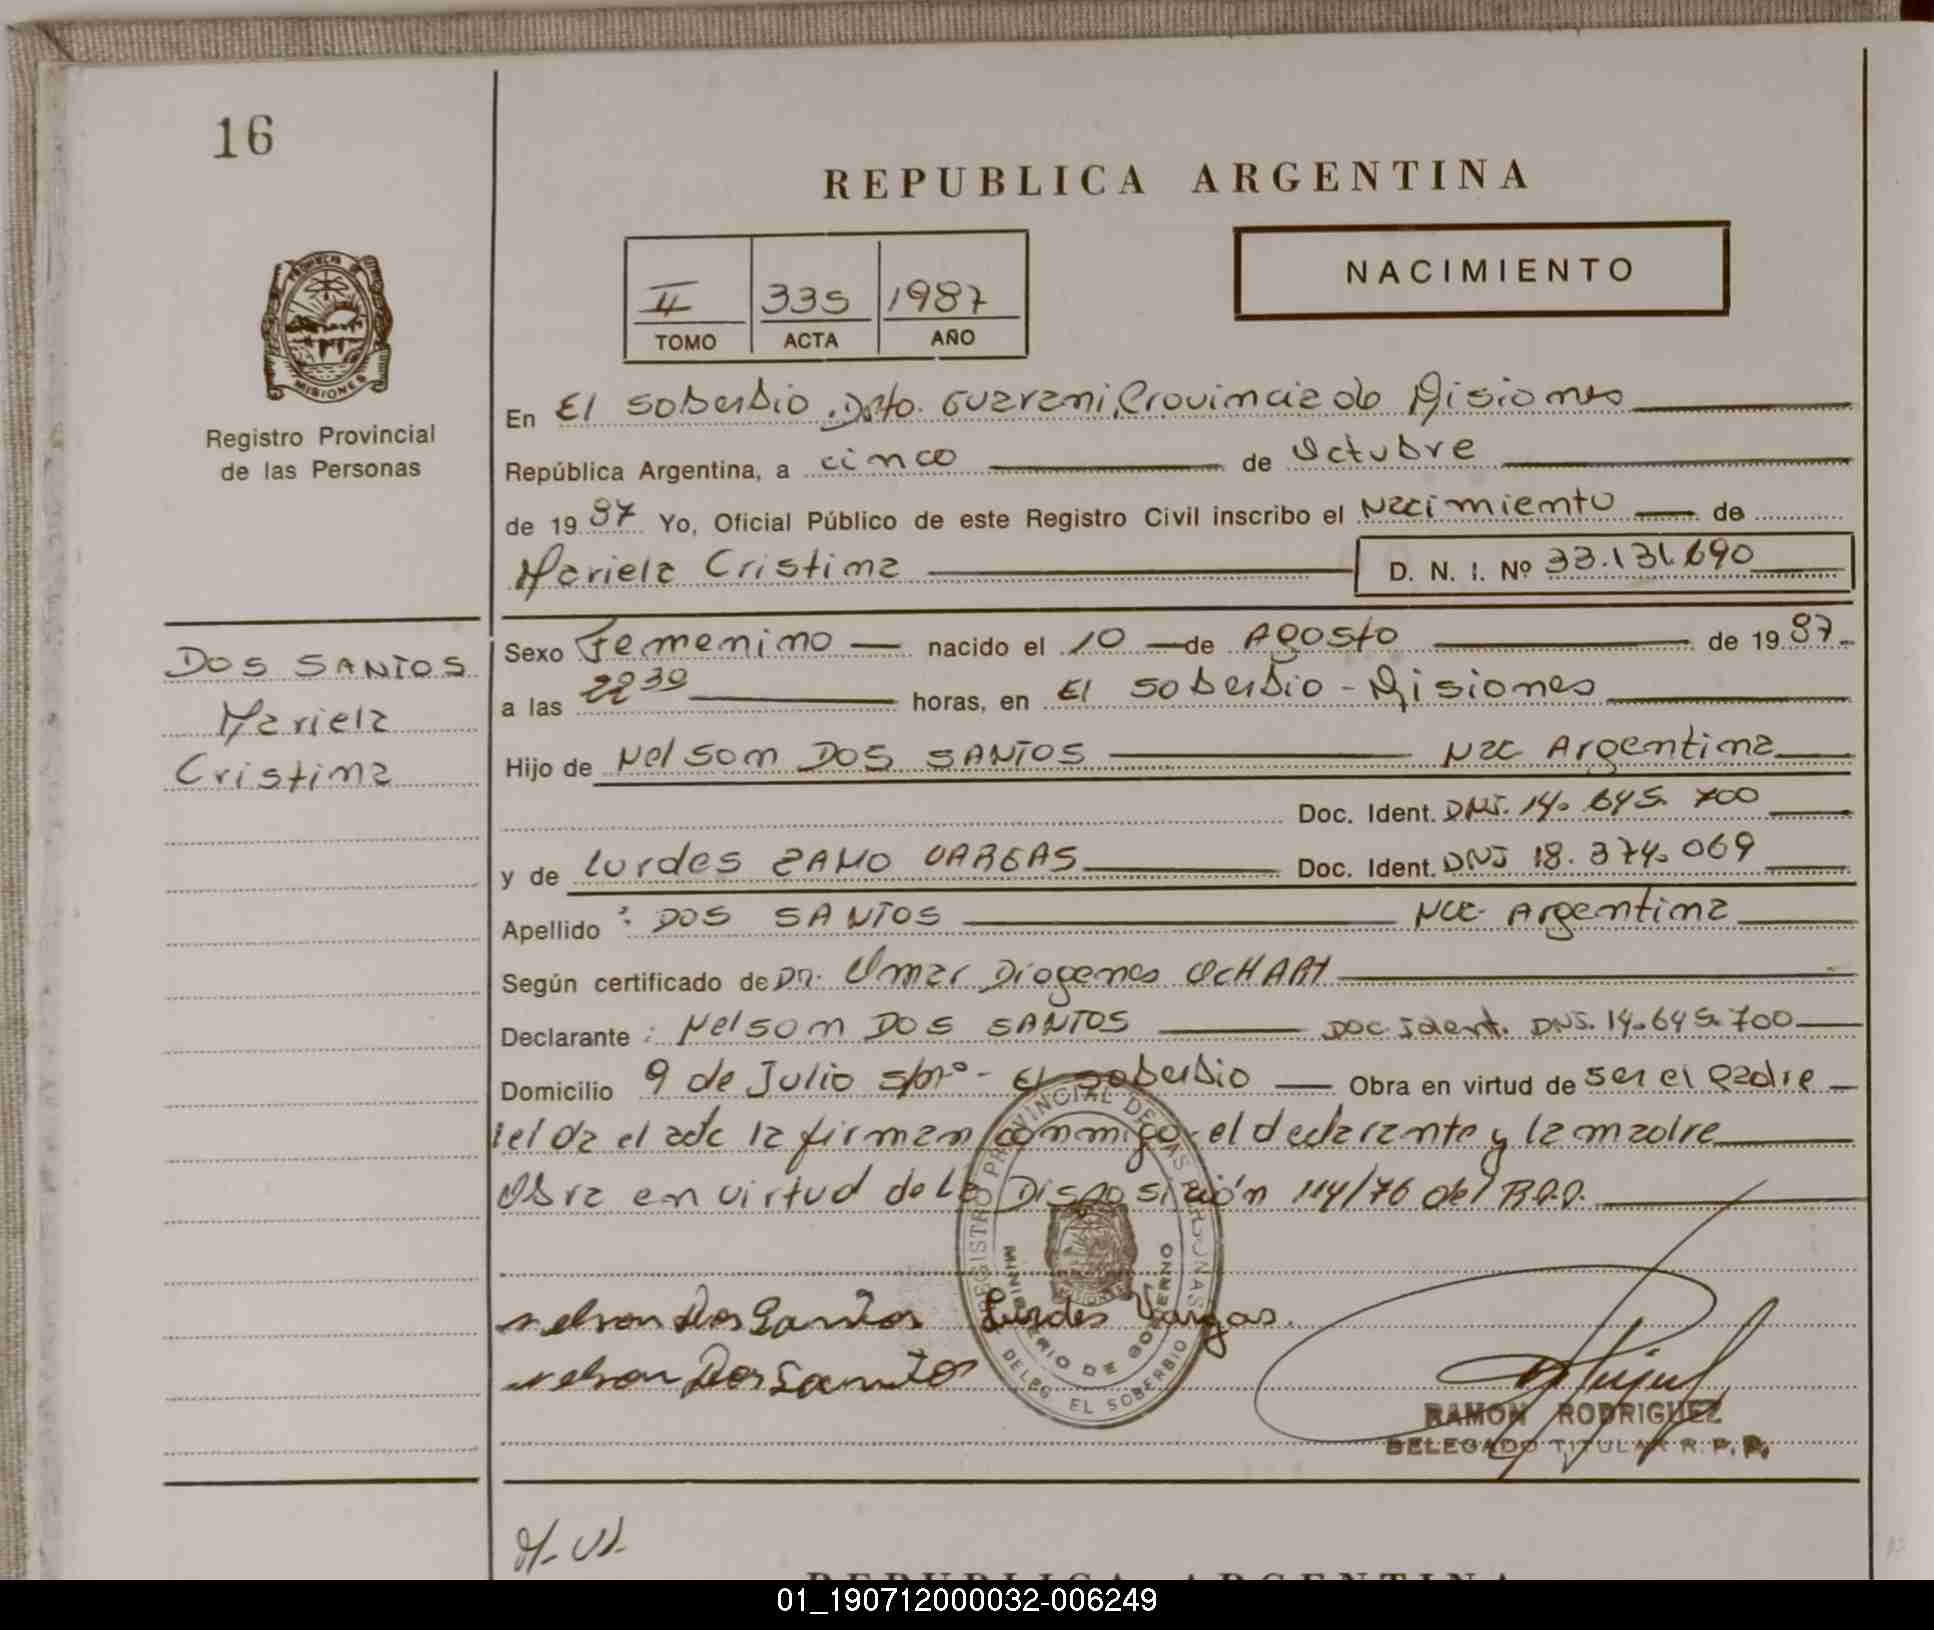 16
REPUBLICA ARGENTINA
NACIMIENTO
II 335 1987
TOMO ACTA AÑO
PROVINCIA DE
MISIONES
Registro Provincial
de las Personas
En El Soberbio, Dpto. Guarani, Provincia de Misiones
República Argentina, a cinco de Octubre
de 1987 Yo, Oficial Público de este Registro Civil inscribo el Nacimiento de
Mariela Cristina D. N. I. Nº 33.131.690
DOS SANTOS
Mariela
Cristina
Sexo Femenino nacido el 10 de Agosto de 1987
a las 22 30 horas, en El Soberbio - Misiones
Hijo de Nelson DOS SANTOS Nac Argentina
Doc. Ident. DNI. 14. 645. 700
y de Lurdes ZANO VARGAS Doc. Ident. DNI 18. 374. 069
Apellido : DOS SANTOS Nac Argentina
Según certificado de Dr. Omar Diogenes OCHART
Declarante : Nelson DOS SANTOS Doc Ident. DNI. 14.645.700
Domicilio 9 de Julio s/nº - El Soberbio Obra en virtud de ser el Padre
leida el acta la firman conmigo el declarante y la madre
Obra en virtud de la Disposición 114/76 del R.P.P.
REGISTRO PROVINCIAL DE LAS PERSONAS
MINISTERIO DE GOBIERNO
DELEG. EL SOBERBIO
Nelson Dos Santos Lurdes Vargas.
Nelson Dos Santos
RAMON RODRIGUEZ
DELEGADO TITULAR R. P. P.
REPUBLICA ARGENTINA
01_190712000032-006249